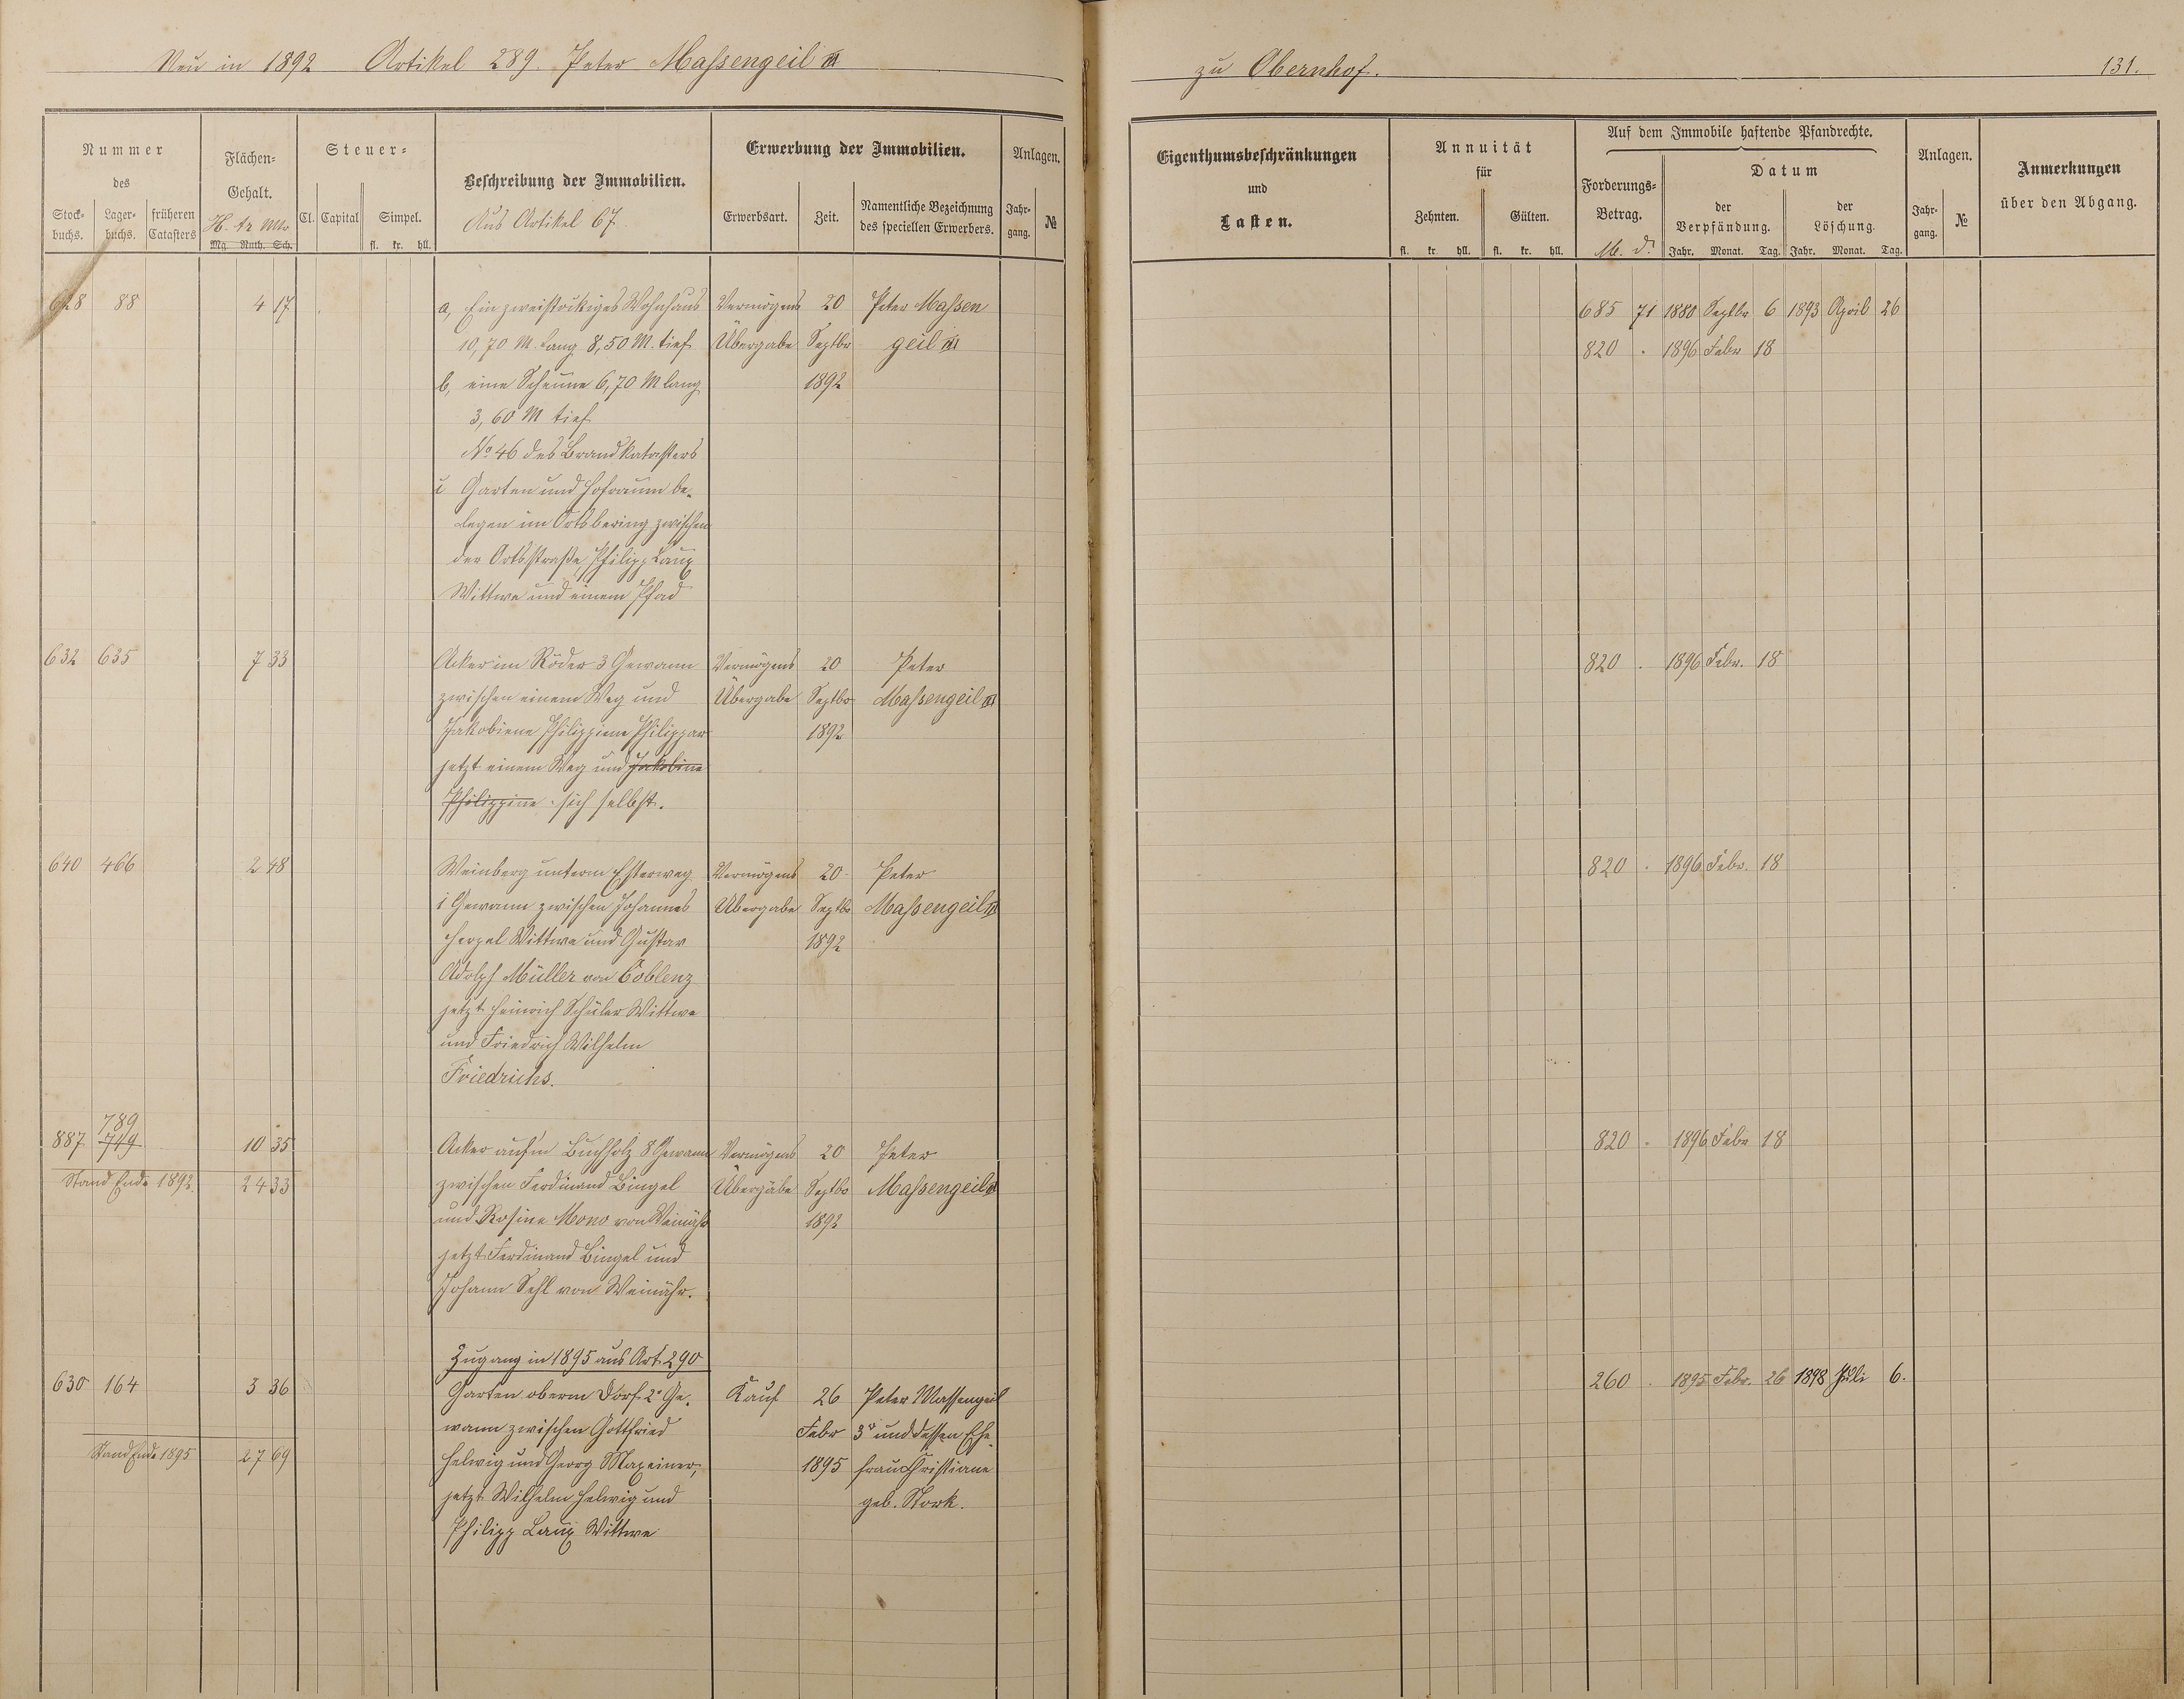 Neu in 1892 Artikel 289. Peter Maßengeil III
zu Obernhof. 131.
Nummer
des
Stock-
buchs.
Lager-
buchs.
früheren
Catasters
Flächen-
Gehalt.
H. Ar Mtr
Mg. Ruth. Sch.
Steuer-
Cl. Capital Simpel.
fl. kr. hll.
Beschreibung der Immobilien.
Aus Artikel 67
Erwerbung der Immobilien.
Erwerbsart. Zeit.
Namentliche Bezeichnung
des speciellen Erwerbers.
Anlagen.
Jahr-
gang.
№
Eigenthumsbeschränkungen
und
Lasten.
Annuität
für
Zehnten. Gülten.
fl. kr. hll. fl. kr. hll.
Auf dem Immobile haftende Pfandrechte.
Forderungs-
Betrag.
M. d.
Datum
der
Verpfändung.
der
Löschung.
Jahr. Monat. Tag. Jahr. Monat. Tag.
Anlagen.
Jahr-
gang.
№
Anmerkungen
über den Abgang.
628 88 4 17 a, Ein zweistöckiges Wohnhaus Vermögens 20 Peter Maßen 685 71 1880 Septbr 6 1893 April 26
10,70 M. lang 8,50 M. tief Übergabe Septbr geil III 820 . 1896 Febr 18
b, eine Scheune 6,70 M lang 1892
3,60 M tief
No 46 des Brandkatasters
Garten und Hofraum be-
legen im Ortsbering zwischen
der Ortsstraße, Philipp Laux
Wittwe und einem Pfad
632 635 7 33 Acker im Röder 3 Gewann Vermögens 20 Peter 820 . 1896 Febr. 18
zwischen einem Weg und Übergabe Septbr Maßengeil III
Jakobiene Philippiene Philippar 1892
jetzt einem Weg und Jakobine
Philippine sich selbst.
640 466 2 48 Weinberg unterm Esterweg Vermögens 20 Peter 820 . 1896 Febr. 18
1 Gewann zwischen Johannes Übergabe Septbr Maßengeil III
Wittwe und Gustav 1892
Adolph Müller von Coblenz
jetzt Heinrich Schüler Wittwe
und Friedrich Wilhelm
Friedrichs.
789
887 749 10 35 Acker auf'm Buchholz 8 Gewann Vermögens 20 Peter 820 . 1896 Febr 18
Stand Ende 1892. 24 33 zwischen Ferdinand Bingel Übergabe Septbr Maßengeil III
und Rosine Mono von Weinähr 1892
jetzt Ferdinand Bingel und
Johann Sehl von Weinähr.
Zugang in 1895 aus Art. 290
630 164 3 36 Garten oberm Dorf 2r Ge- Kauf 26 Peter Massengeil 260 . 1895 Febr. 26 1898 Juli 6.
wann zwischen Gottfried Febr 3r und dessen Ehe-
Stand Ende 1895 27 69 Helwig und Georg Maxeiner, 1895 frau Christiane
jetzt Wilhelm Helwig und geb. Stork.
Philipp Laux Wittwe